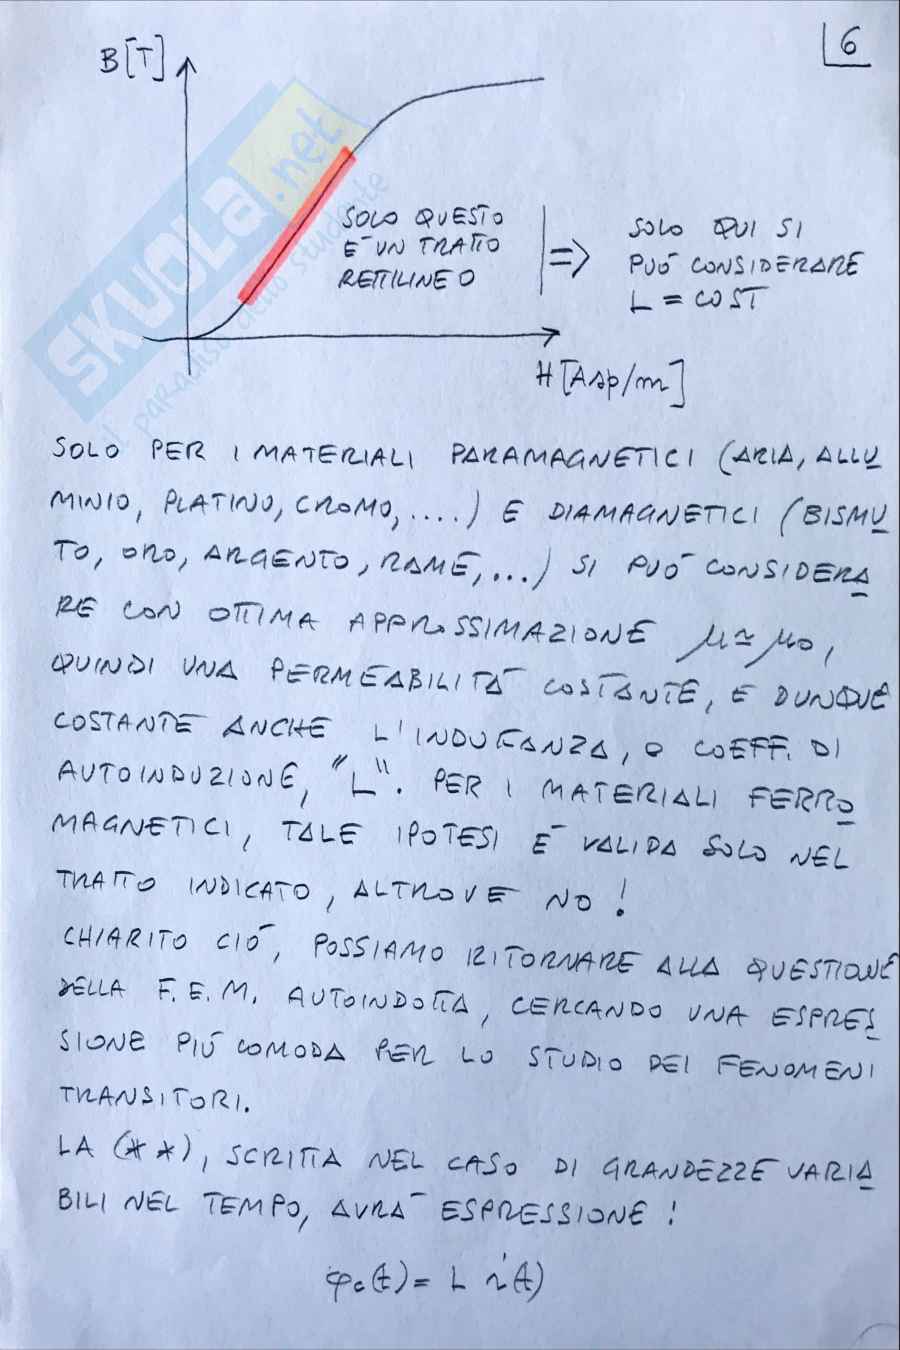 6
B [T]
SKUOLA.net
il paradiso dello studente
SOLO QUESTO
E' UN TRATTO
RETTILINEO
=>
SOLO QUI SI
PUÓ CONSIDERARE
L = COST
H [Asp/m]
SOLO PER I MATERIALI PARAMAGNETICI (ARIA, ALLU
MINIO, PLATINO, CROMO, ....) E DIAMAGNETICI (BISMU
TO, ORO, ARGENTO, RAME, ...) SI PUÓ CONSIDERA
RE CON OTTIMA APPROSSIMAZIONE μ ≃ μo,
QUINDI UNA PERMEABILITÁ COSTANTE, E DUNQUE
COSTANTE ANCHE L'INDUTTANZA, O COEFF. DI
AUTOINDUZIONE, "L". PER I MATERIALI FERRO
MAGNETICI, TALE IPOTESI E' VALIDA SOLO NEL
TRATTO INDICATO, ALTROVE NO!
CHIARITO CIÓ, POSSIAMO RITORNARE ALLA QUESTIONE
DELLA F.E.M. AUTOINDOTTA, CERCANDO UNA ESPRES
SIONE PIÚ COMODA PER LO STUDIO DEI FENOMENI
TRANSITORI.
LA (**), SCRITTA NEL CASO DI GRANDEZZE VARIA
BILI NEL TEMPO, AVRÁ ESPRESSIONE:
φc(t) = L i(t)